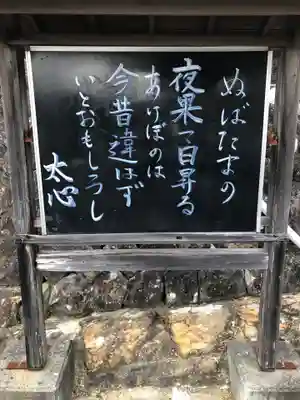 ぬばたまの
夜果て白昇る
あけぼのは
今昔違はず
いとおもしろし
太心